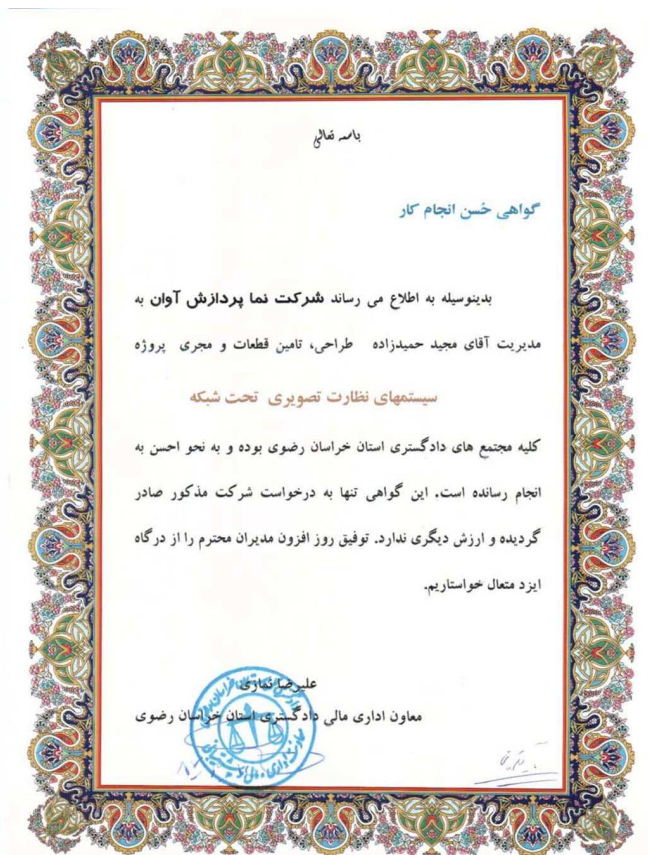 باسمه تعالی
گواهی حُسن انجام کار
بدینوسیله به اطلاع می رساند شرکت نما پردازش آوان به
مدیریت آقای مجید حمیدزاده طراحی، تامین قطعات و مجری پروژه
سیستمهای نظارت تصویری تحت شبکه
کلیه مجتمع های دادگستری استان خراسان رضوی بوده و به نحو احسن به
انجام رسانده است. این گواهی تنها به درخواست شرکت مذکور صادر
گردیده و ارزش دیگری ندارد. توفیق روز افزون مدیران محترم را از درگاه
ایزد متعال خواستاریم.
علیرضا نمازی
معاون اداری مالی دادگستری استان خراسان رضوی